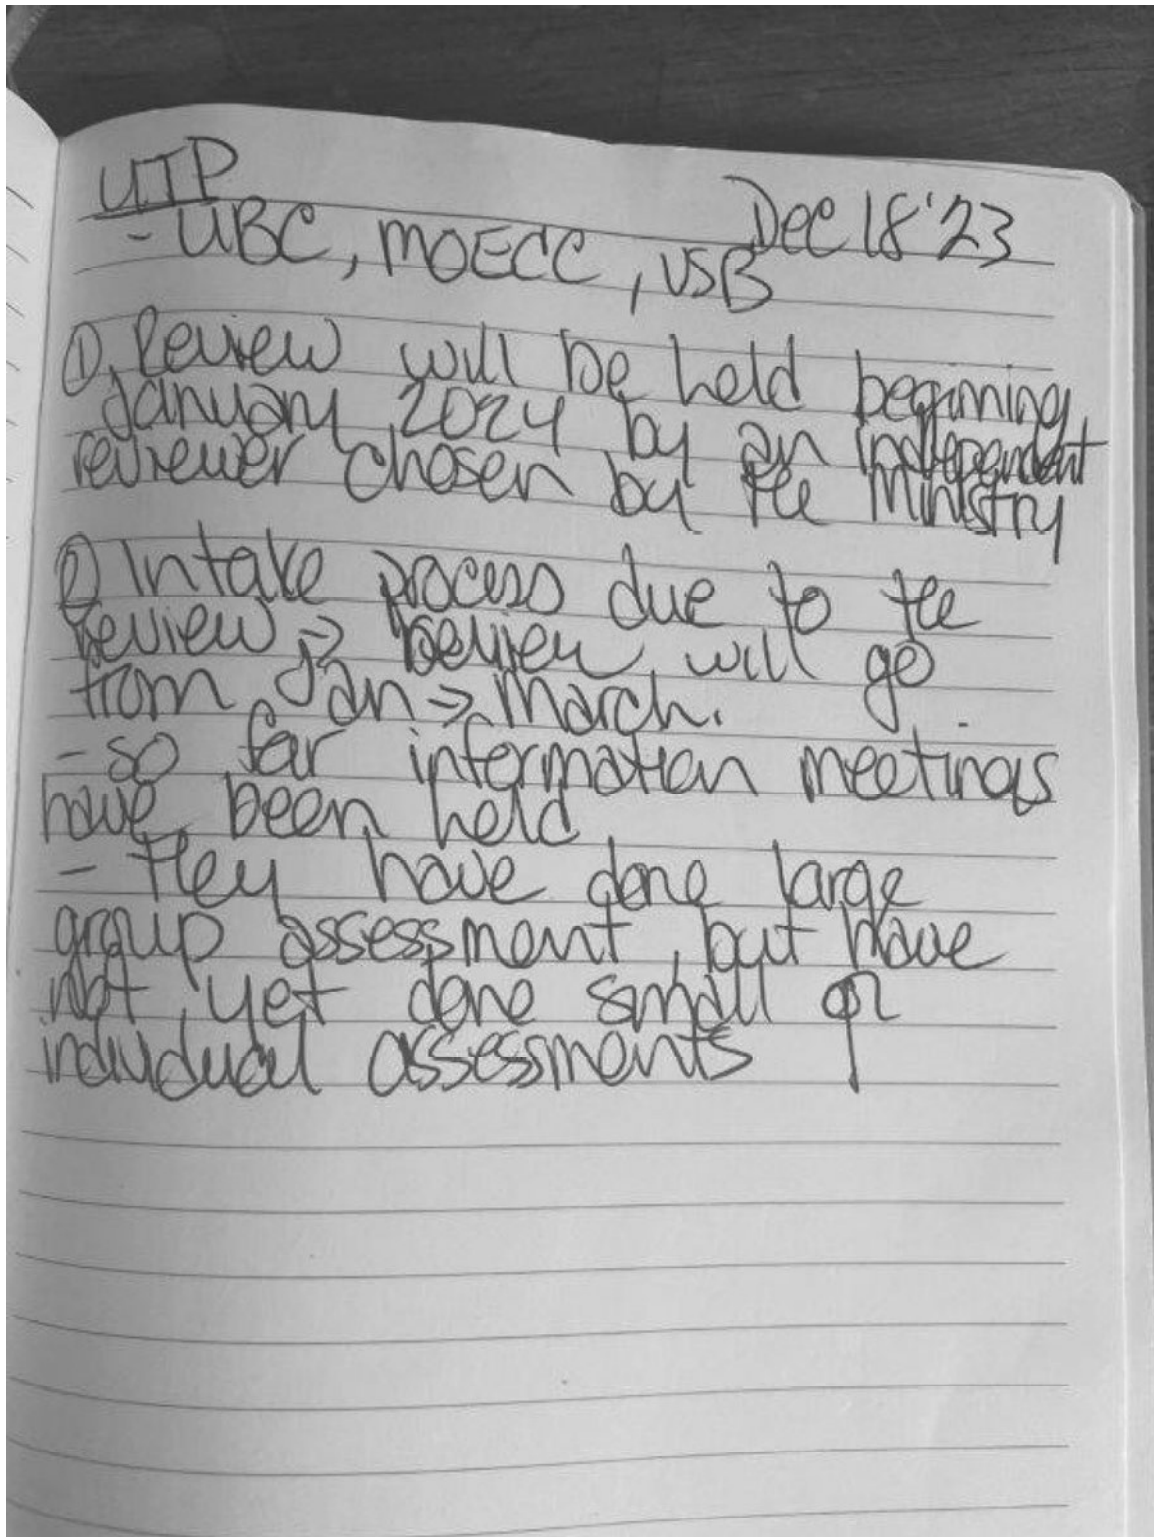 UTP
Dec 18 '23
- UBC, MOECC, VSB
① Review will be held beginning
January 2024 by an independent
reviewer chosen by the Ministry
② Intake process due to the
review → Review will go
from Jan → March.
- so far information meetings
have been held
- they have done large
group assessment, but have
not yet done small or
individual assessments